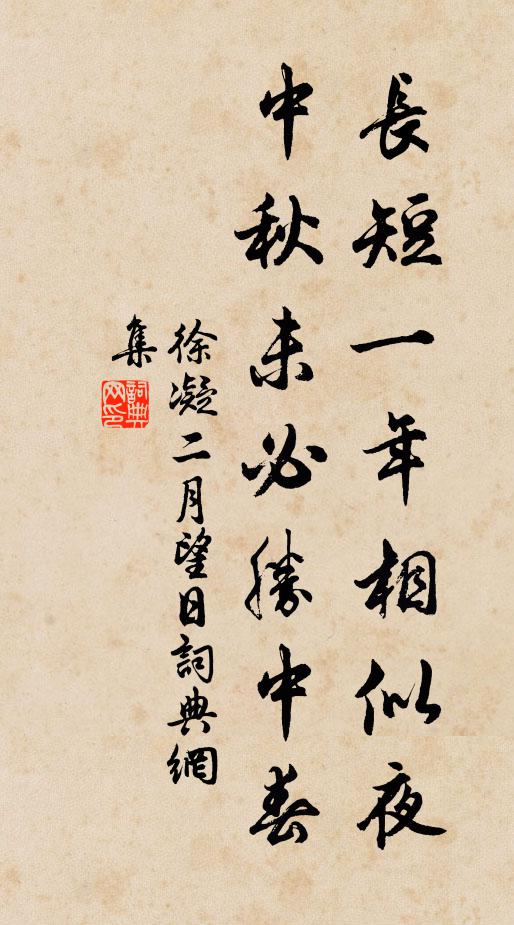 長短一年相似夜
中秋未必勝中春
徐凝二月望日詞典網
集
詞典網印